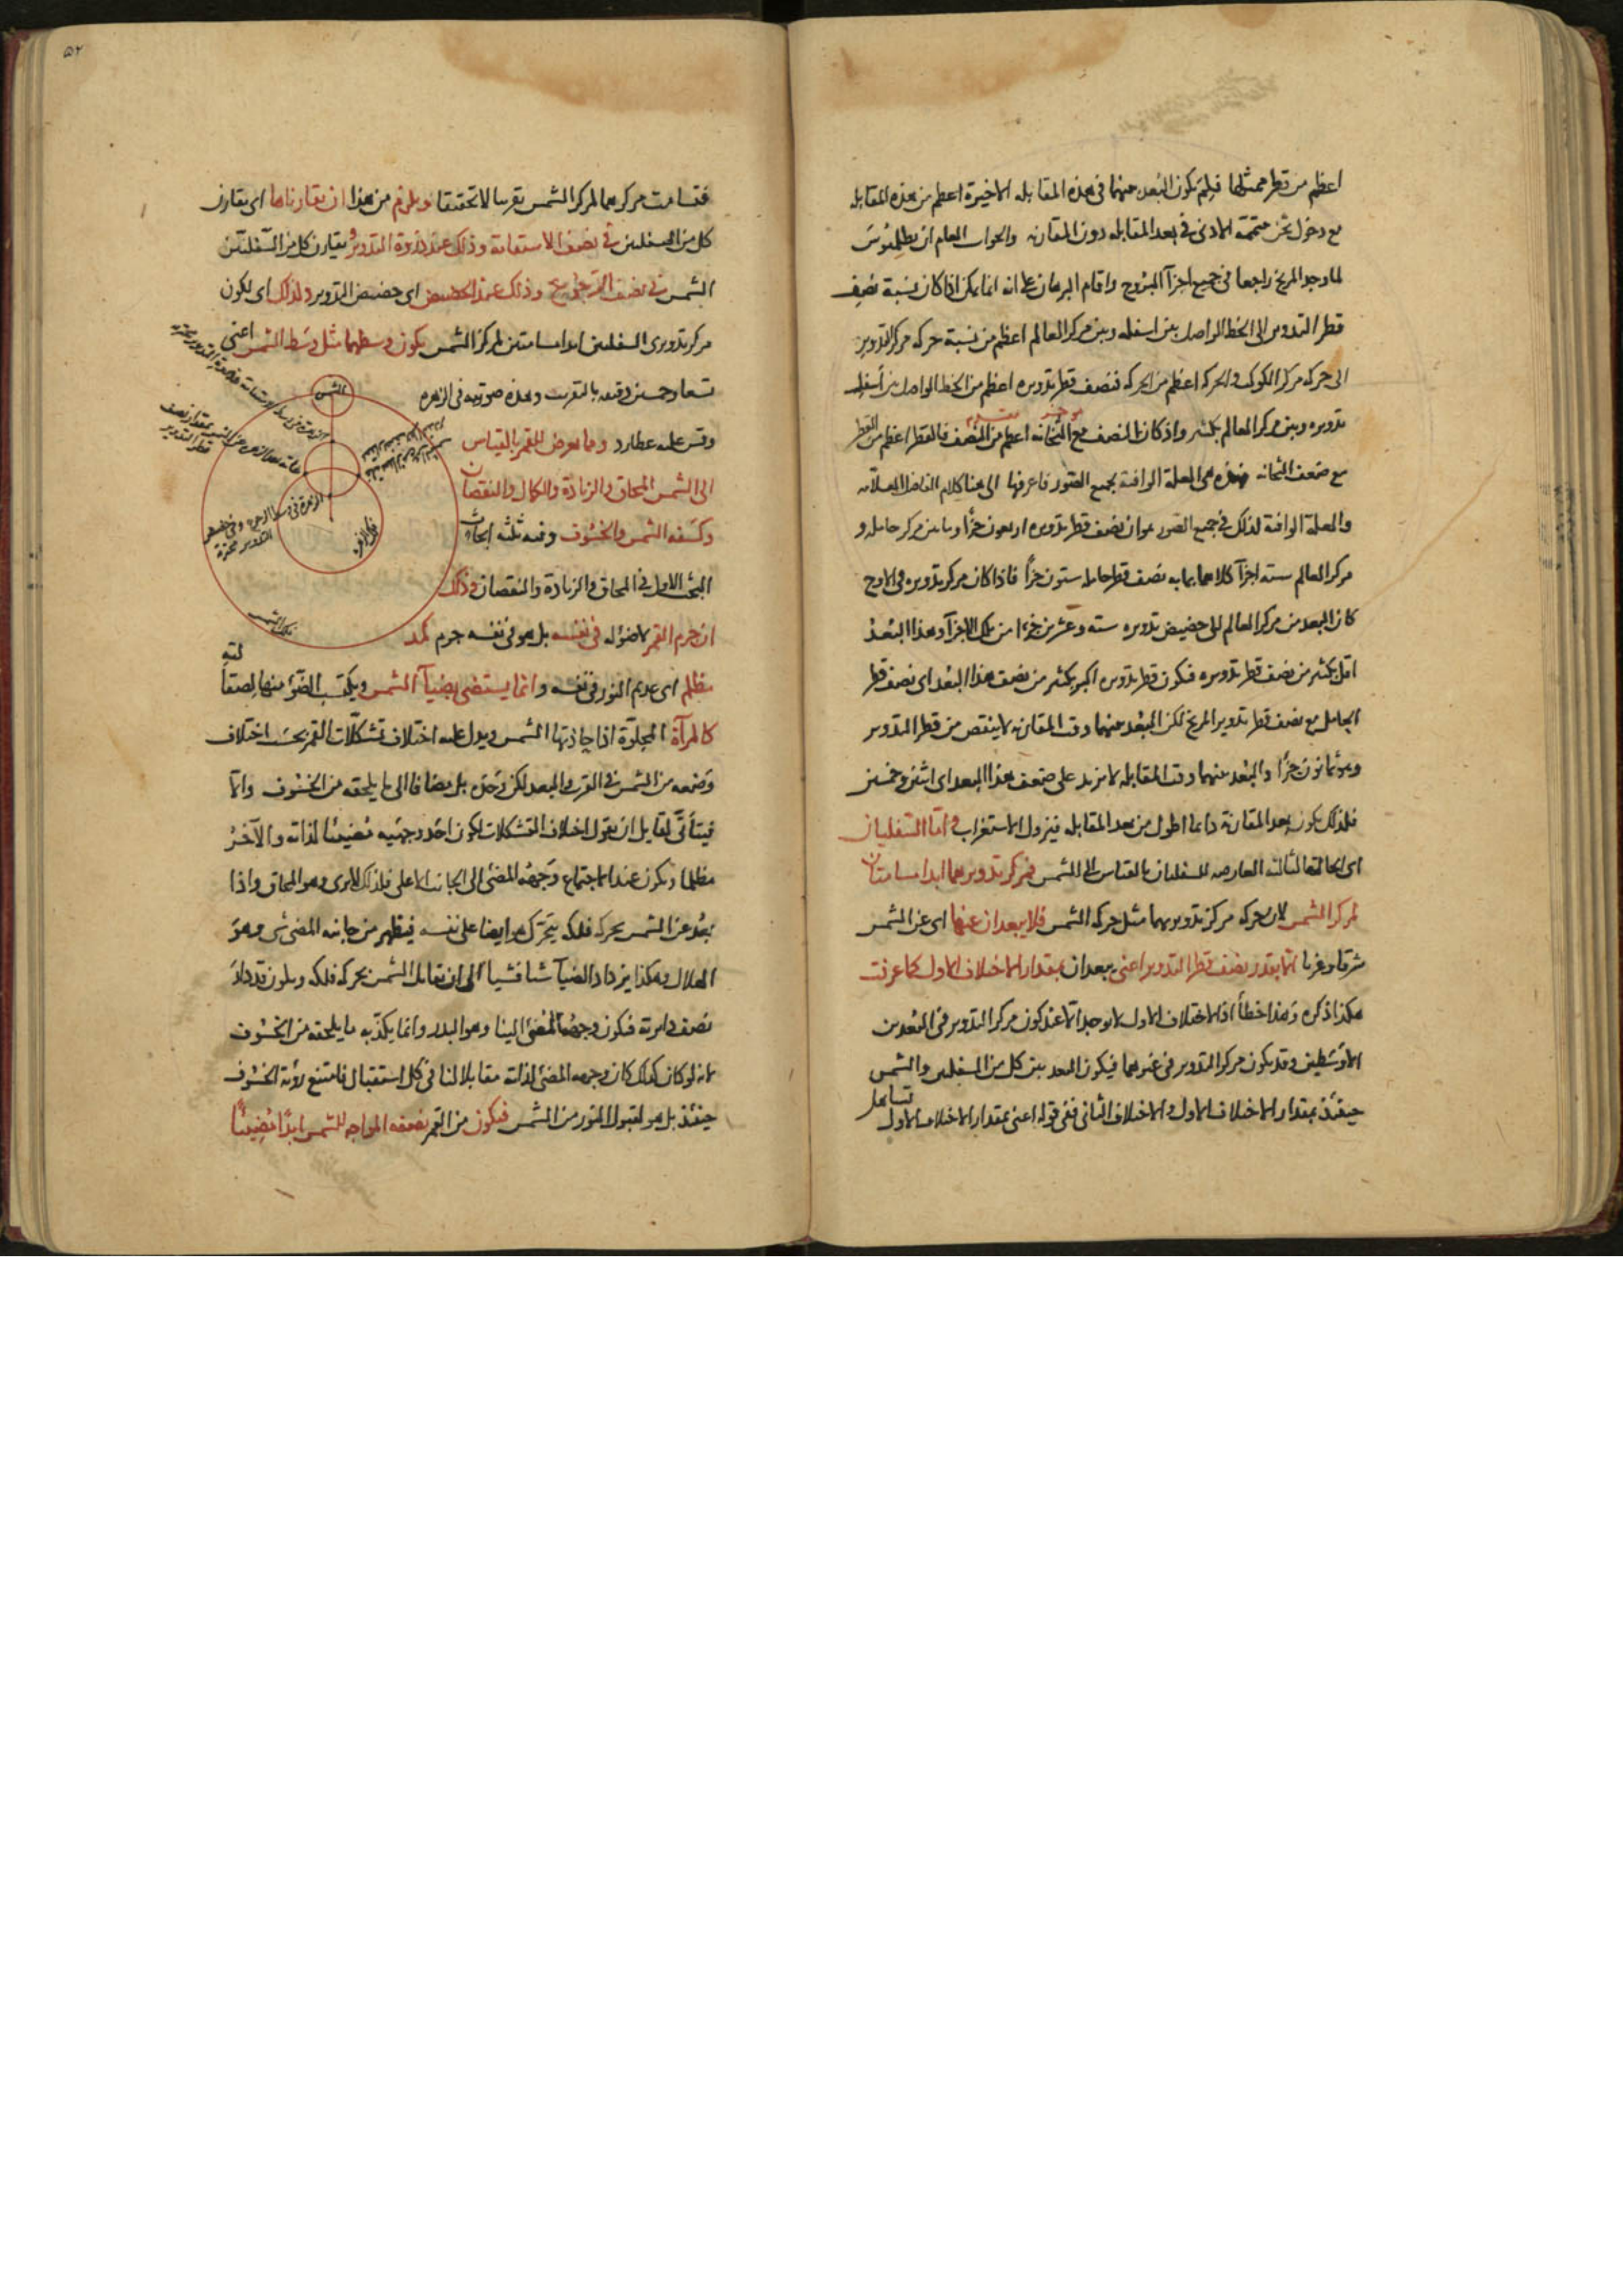 اعظم من قطر ممثلها فلم يكون البُعد بينهما في هذه المقابلة الاخيرة اعظم من هذه المقابلة
مع دخول ثخن متممه الادنى في بعد المقابلة دون المقارنة والجواب العام ان بطلميوس
لما وجد المريخ راجعا في جميع اجزآ البروج واقام البرهان على انه انما يمكن اذا كان نسبة نصف
قطر التدوير الى الخط الواصل بين اسفله وبين مركز العالم اعظم من نسبة حركة مركز التدوير
الى حركة مركز الكوكب والحركة اعظم من الحركة فنصف قطر تدويره اعظم من الخط الواصل بين أسفل
تدويره وبين مركز العالم بكثير واذ كان النصف مع الثخانة اعظم من النصف فالقطر اعظم من القطر
مع ضعف الثخانة فهذه هي العلة الوافية بجميع الصور فاعرفها الى هنا كلام الفاضل العلامه
والعلة الوافية لذلك في جميع الصور هو ان نصف قطر تدويره اربعون جزأ وما بين مركز حامله و
مركز العالم ستة اجزآ كلاهما بما به نصف قطر حامله ستون جزأ فاذا كان مركز تدويره في الاوج
كان البعد من مركز العالم الى حضيض تدويره ستة وعشرين جزءا من تلك الاجزآ وهذا البُعدُ
اقل بكثير من نصف قطر تدويره فيكون قطر تدويره اكبر بكثير من نصف هذا البُعد اى نصف قطر
الحامل مع نصف قطر تدوير المريخ لكن البُعد بينهما وقت المقارنة لا ينقص من قطر التدوير
وهو ثمانون جزأ والبُعد بينهما وقت المقابلة لا يزيد على ضعف هذا البعد اى اثنين وخمسين
فلذلك يكون بعد المقارنة دائما اطول من بعد المقابلة فيزول الاستغراب واما السفليان
اى الحالة الثالثة العارضة للسفليان بالقياس الى الشمس فمركز تدويرهما ابدا مسامتان
لمركز الشمس لان حركة مركز تدويرهما مثل حركة الشمس فلا يبعدان عنها اى عن الشمس
شرقا وغربا الا بقدر نصف قطر التدوير اعنى يبعدان بمقدار الاختلاف الاول كما عرفت
هكذا ذكره وهذا خطأ اذ الاختلاف الاول لا يوجد الا عند كون مركز التدوير في البُعدين
الاوسطين وقد يكون مركز التدوير في غيرهما فيكون البعد بين كل من السفليين والشمس
حينئذ بمقدار الاختلاف الاول والاختلاف الثانى ففى قوله اعنى بمقدار الاختلاف الاول تساهل
۵۲
فتسامت مركزهما لمركز الشمس تقريبا لا تحقيقا ويلزم من هذا ان تقارناها اى يقارن
كل من السفليين في نصف الاستقامة وذلك عند ذروة التدوير ويقارن كل من السفليين
الشمس في نصف الرجوع وذلك عند الحضيض اى حضيض التدوير ولذلك اى لكون
مركز تدويرى السفليين ابدا مسامتين لمركز الشمس يكون وسطهما مثل وسط الشمس اعنى
تسعا وخمسين دقيقة بالتقريب وهذه صورته في الزهره
وقس عليه عطارد ومما يعرض للقمر بالقياس
الى الشمس المحاق والزيادة والكمال والنقصان
وكسفه الشمس والخسوف وفيه ثلثة ابحاث
البحث الاول في المحاق والزيادة والنقصان وذلك
ان جرم القمر لا ضوء له في نفسه بل هو في نفسه جرم كمد
مظلم اى عديم النور في نفسه وانما يستضى بضيآ الشمس ويكتسب الضوء منها لصقالته
كالمرآة المجلوّة اذا حاذتها الشمس ويدل عليه اختلاف تشكلات القمر بحسب اختلاف
وضعه من الشمس في القرب والبعد لكن وحده بل مضافا الى ما يلحقه من الخسوف والا
فيتأتّى لقايل ان يقول اختلاف التشكلات لكون احد وجهيه مضيئا لذاته والآخر
مظلما ويكون عند الاجتماع وجهه المضئ الى الجانب الاعلى فلذلك لا يرى وهو المحاق واذا
بعُد عن الشمس بحركة فلكه يتحرّك هو ايضا على نفسه فيظهر من جانبه المضئ شى وهو
الهلال وهكذا يزداد الضيآ شيا فشيا الى ان يقابل الشمس بحركة فلكه ويكون قد دار
نصف دايرة فيكون وجهه المضئ الينا وهو البدر وانما يكذّبه ما يلحقه من الخسوف
لانه لو كان كذلك كان وجهه المضئ لذاته مقابلا لنا في كل استقبال فامتنع رؤية الخسوف
حينئذ بل هو لقبول النور من الشمس فيكون من القمر نصفه المواجه للشمس ابدًا مضيئًا
الشمس